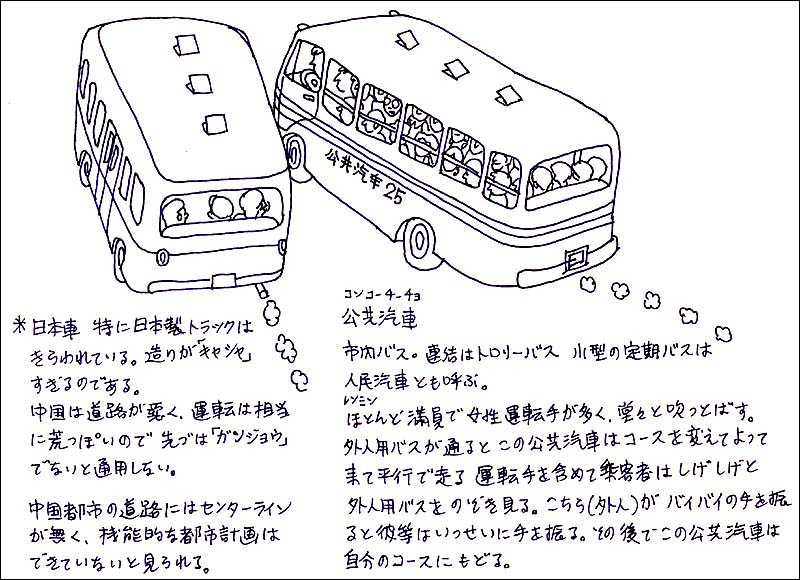 公共汽車 25
*日本車 特に日本製トラックは
きらわれている。造りが「キャシャ」
すぎるのである。
中国は道路が悪く、運転は相当
に荒っぽいので 先づは「ガンジョウ」
でないと通用しない。
中国都市の道路にはセンターライン
が無く、機能的な都市計画は
できていないと見られる。
コンコーチーチョ
公共汽車
市内バス。連結はトロリーバス 小型の定期バスは
人民汽車とも呼ぶ。
レンミン
ほとんど満員で女性運転手が多く、堂々と吹っとばす。
外人用バスが通ると この公共汽車はコースを変えてよって
来て平行で走る 運転手を含めて乗客者はしげしげと
外人用バスをのぞき見る。こちら(外人)が バイバイの手を振
ると彼等はいっせいに手を振る。その後でこの公共汽車は
自分のコースにもどる。